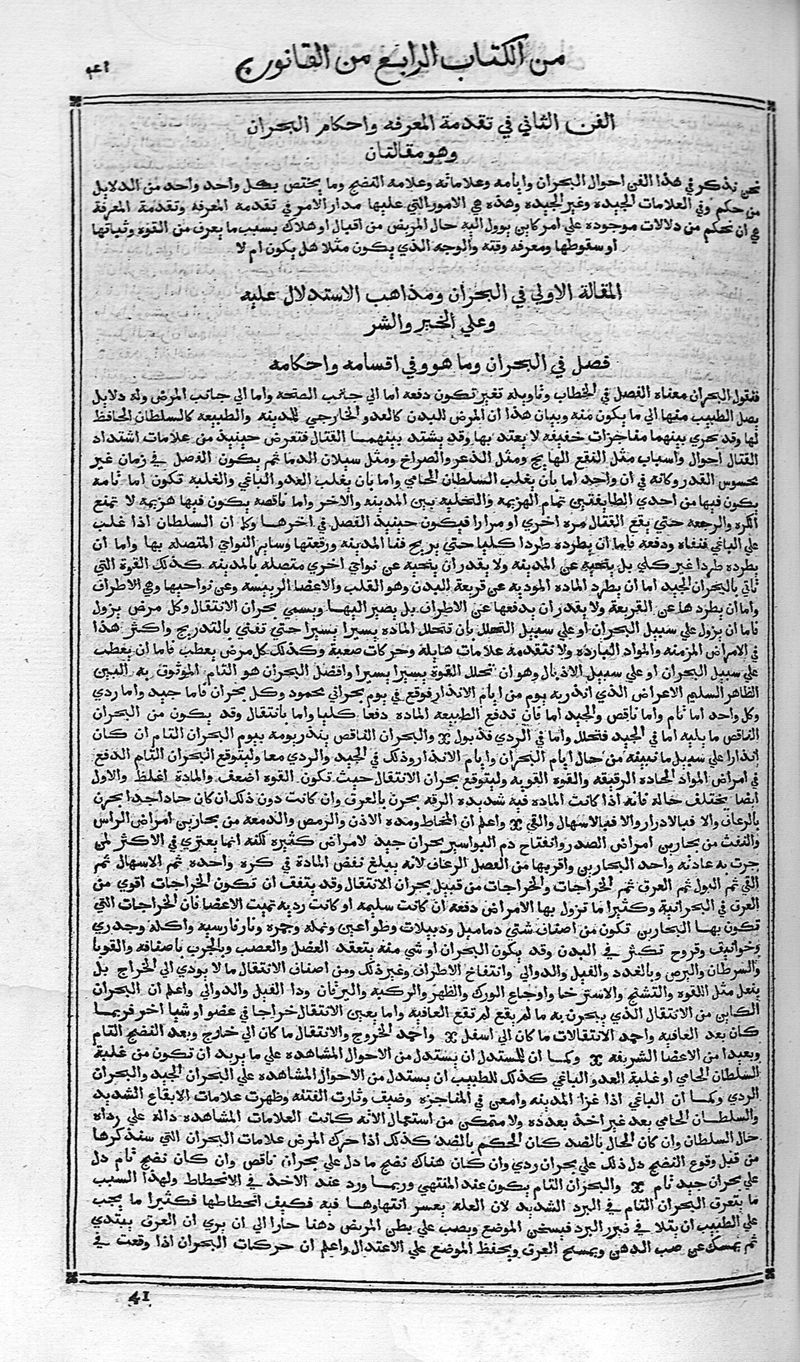 من الكتاب الرابع من القانون
الفن الثاني في تقدمة المعرفه واحكام البحران
وهو مقالتان
نحن نذكر في هذا الفن احوال البحران وايامه وعلاماته وعلامه النضج وما يختص بكل واحد واحد من الدلايل
من حكم وفي العلامات الجيده وغير الجيده وهذه هي الامور التي عليها مدار الامر في تقدمه المعرفه وتقدمة المعرفة
هي ان تحكم من دلالات موجوده علي امر كاين يوول اليه حال المريض من اقبال او هلاك بسبب ما يعرف من القوه وثباتها
او سقوطها ومعرفه وقته والوجه الذي يكون مثلا هل يكون ام لا
المقالة الاولي في البحران ومذاهب الاستدلال عليه
وعلي الخير والشر
فصل في البحران وما هو وفي اقسامه واحكامه
فنقول البحران معناه الفصل في الخطاب وتاويله تغير تكون دفعه اما الي جانب الصحه واما الي جانب المرض وله دلايل
يصل الطبيب منها الي ما يكون منه وبيان هذا ان المرض للبدن كالعدو الخارجي للمدينه والطبيعه كالسلطان الحافظ
لها وقد يجري بينهما مفاجزات خفيفه لا يعتد بها وقد يشتد بينهما القتال فتعرض حينيذ من علامات اشتداد
القتال احوال واسباب مثل النقع الهايج ومثل الذعر والصراخ ومثل سيلان الدما ثم يكون الفصل في زمان غير
محسوس القدر وكانه في ان واحد اما بان يغلب السلطان الحامي واما بان يغلب العدو الباغي والغلبه تكون اما تامه
يكون فيها من احدي الطايفتين تمام الهزيمه والتخليه بين المدينه والاخر واما ناقصه يكون فيها هزيمه لا تمنع
الكره والرجعه حتي يقع القتال مره اخري او مرارا فيكون حينيذ الفصل في اخرها وكما ان السلطان اذا غلب
علي الباغي فنفاه ودفعه فاما ان يطرده طردا كليا حتي يريح فنا المدينه ورقعتها وساير النواحي المتصله بها واما ان
يطرده طردا غير كلي بل ينحيه عن المدينه ولا يقدر ان ينحيه عن نواحي اخري متصله بالمدينه كذلك القوة التي
تاتي بالبحران الجيد اما ان يطرد المادة الموديه عن قريعة البدن وهو القلب والاعضا الرييسه وعن نواحيها وهي الاطراف
واما ان يطردها عن القريعة ولا يقدر ان يدفعها عن الاطراف بل يصير اليها ويسمي بحران الانتقال وكل مرض يزول
فاما ان يزول علي سبيل البحران او علي سبيل التحلل بان تتحلل المادة يسيرا يسيرا حتي تفني بالتدريج واكثر هذا
في الامراض المزمنه والمواد البارده ولا تتقدمه علامات هايلة وحركات صعبة وكذلك كل مرض يعطب فاما ان يعطب
علي سبيل البحران او علي سبيل الاذبال وهو ان تحلل القوة يسيرا يسيرا وافضل البحران هو التام الموثوق به البين
الظاهر السليم الاعراض الذي انذر به يوم من ايام الانذار فوقع في يوم بحراني محمود وكل بحران فاما جيد واما ردي
وكل واحد اما تام واما ناقص والجيد اما بان تدفع الطبيعه المادة دفعا كليا واما بانتقال وقد يكون من البحران
الناقص ما يليه اما في الجيد فتحلل واما في الردي فذبول والبحران الناقص ينذر يومه بيوم البحران التام ان كان
انذارا علي سبيل ما نبينه من حال ايام البحران وايام الانذار وذلك في الجيد والردي معا وليتوقع البحران التام الدفع
في امراض المواد الحاده الرقيقه والقوه القويه وليتوقع بحران الانتقال حيث تكون القوه اضعف والمادة اغلظ والاول
ايضا يختلف حاله فانه اذا كانت المادة فيه شديدة الرقه بحرن بالعرق وان كانت دون ذلك ان كان حادا جدا بحرن
بالرعاف والا فبالادرار والا فبالاسهال والقي واعلم ان المخاط ومده الاذن والرمص والدمعه من بحارين امراض الراس
والنفث من بحارين امراض الصدر وانفتاح دم البواسير بحران جيد لامراض كثيرة لكنه انما يعتري في الاكثر لمن
جرت به عادته واحد البحارين واقربها من الفصل الرعاف لانه يبلغ نفض المادة في كره واحده ثم الاسهال ثم
القي ثم البول ثم العرق ثم الخراجات والخراجات من قبيل بحران الانتقال وقد يتفق ان تكون الخراجات اقوي من
العرق في البحرانية وكثيرا ما تزول بها الامراض دفعه ان كانت سليمه او كانت رديه تميت الاعضا فان الخراجات التي
تكون بها البحارين تكون من اصناف شتي دماميل ودبيلات وطواعين ونمله وجمره ونار فارسيه واكله وجدري
وخوانيق وقروح تكثر في البدن وقد يكون البحران او شي منه بتعقد العضل والعصب وبالجرب باصنافه والقوبا
والسرطان والبرص وبالغدد والفيل والدوالي وانتفاخ الاطراف وغير ذلك ومن اصناف الانتقال ما لا يودي الي الخراج بل
يفعل مثل اللقوه والتشنج والاسترخا واوجاع الورك والظهر والركبه واليرقان ودا الفيل والدوالي واعلم ان البحران
الكاين من الانتقال الذي يبحرن به ما لم يقع لم تقع العافيه واما يعين الانتقال خراجا في عضو او شيا اخر فربما
كان بعد العافيه واحمد الانتقالات ما كان الي اسفل واحمد الخروج والانتقال ما كان الي خارج وبعد النضج التام
وبعيدا من الاعضا الشريفه وكما ان للمستدل ان يستدل من الاحوال المشاهده علي ما يريد ان تكون من غلبة
السلطان الحامي او غلبة العدو الباغي كذلك للطبيب ان يستدل من الاحوال المشاهده علي البحران الجيد والبحران
الردي وكما ان الباغي اذا غزا المدينه وامعن في المناجزه وضيف وثارت الفتنه وظهرت علامات الايقاع الشديد
والسلطان الحامي بعد غير اخذ بعدده ولا متمكن من استعمال الاته كانت العلامات المشاهده داله علي رداه
حال السلطان وان كان الحال بالضد كان الحكم بالضد كذلك اذا حرك المرض علامات البحران التي سنذكرها
من قبل وقوع النضج دل ذلك علي بحران ردي وان كان هناك نضج ما دل علي بحران ناقص وان كان نضج تام دل
علي بحران جيد تام والبحران التام يكون عند المنتهي وربما ورد عند الاخذ في الانحطاط ولهذا السبب
ما يتعرق البحران التام في البرد الشديد لان العله يعسر انتهاوها فيه فكيف انحطاطها فكثيرا ما يجب
علي الطبيب ان يتلا في ضرر البرد فيسخن الموضع ويصب علي بطن المريض دهنا حارا الي ان يري ان العرق يبتدي
ثم يمسك عن صب الدهن ويمسح العرق ويحفظ الموضع علي الاعتدال واعلم ان حركات البحران اذا وقعت في
41